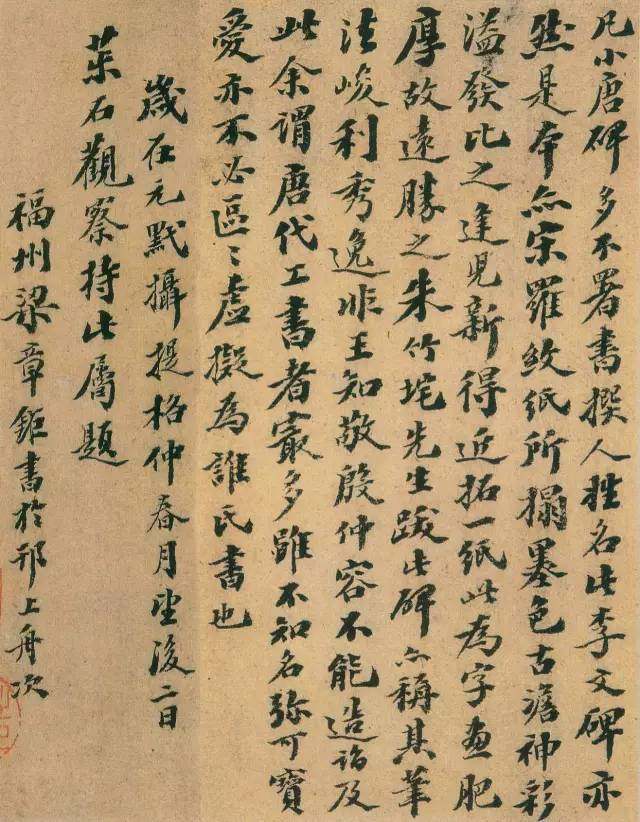 凡小唐碑多不署書撰人姓名此李文碑亦
然是本亦宋羅紋紙所搨墨色古澹神彩
溢發比之逢兒新得近拓一紙此為字畫肥
厚故遠勝之朱竹垞先生跋此碑亦稱其筆
法峻利秀逸非王知敬殷仲容不能造詣及
此余謂唐代工書者寂多雖不知名弥可寶
愛亦不必區〻虛擬為誰氏書也
歲在元黓攝提格仲春月望後二日
茉石觀察持此屬題
福州梁章鉅書於邗上舟次